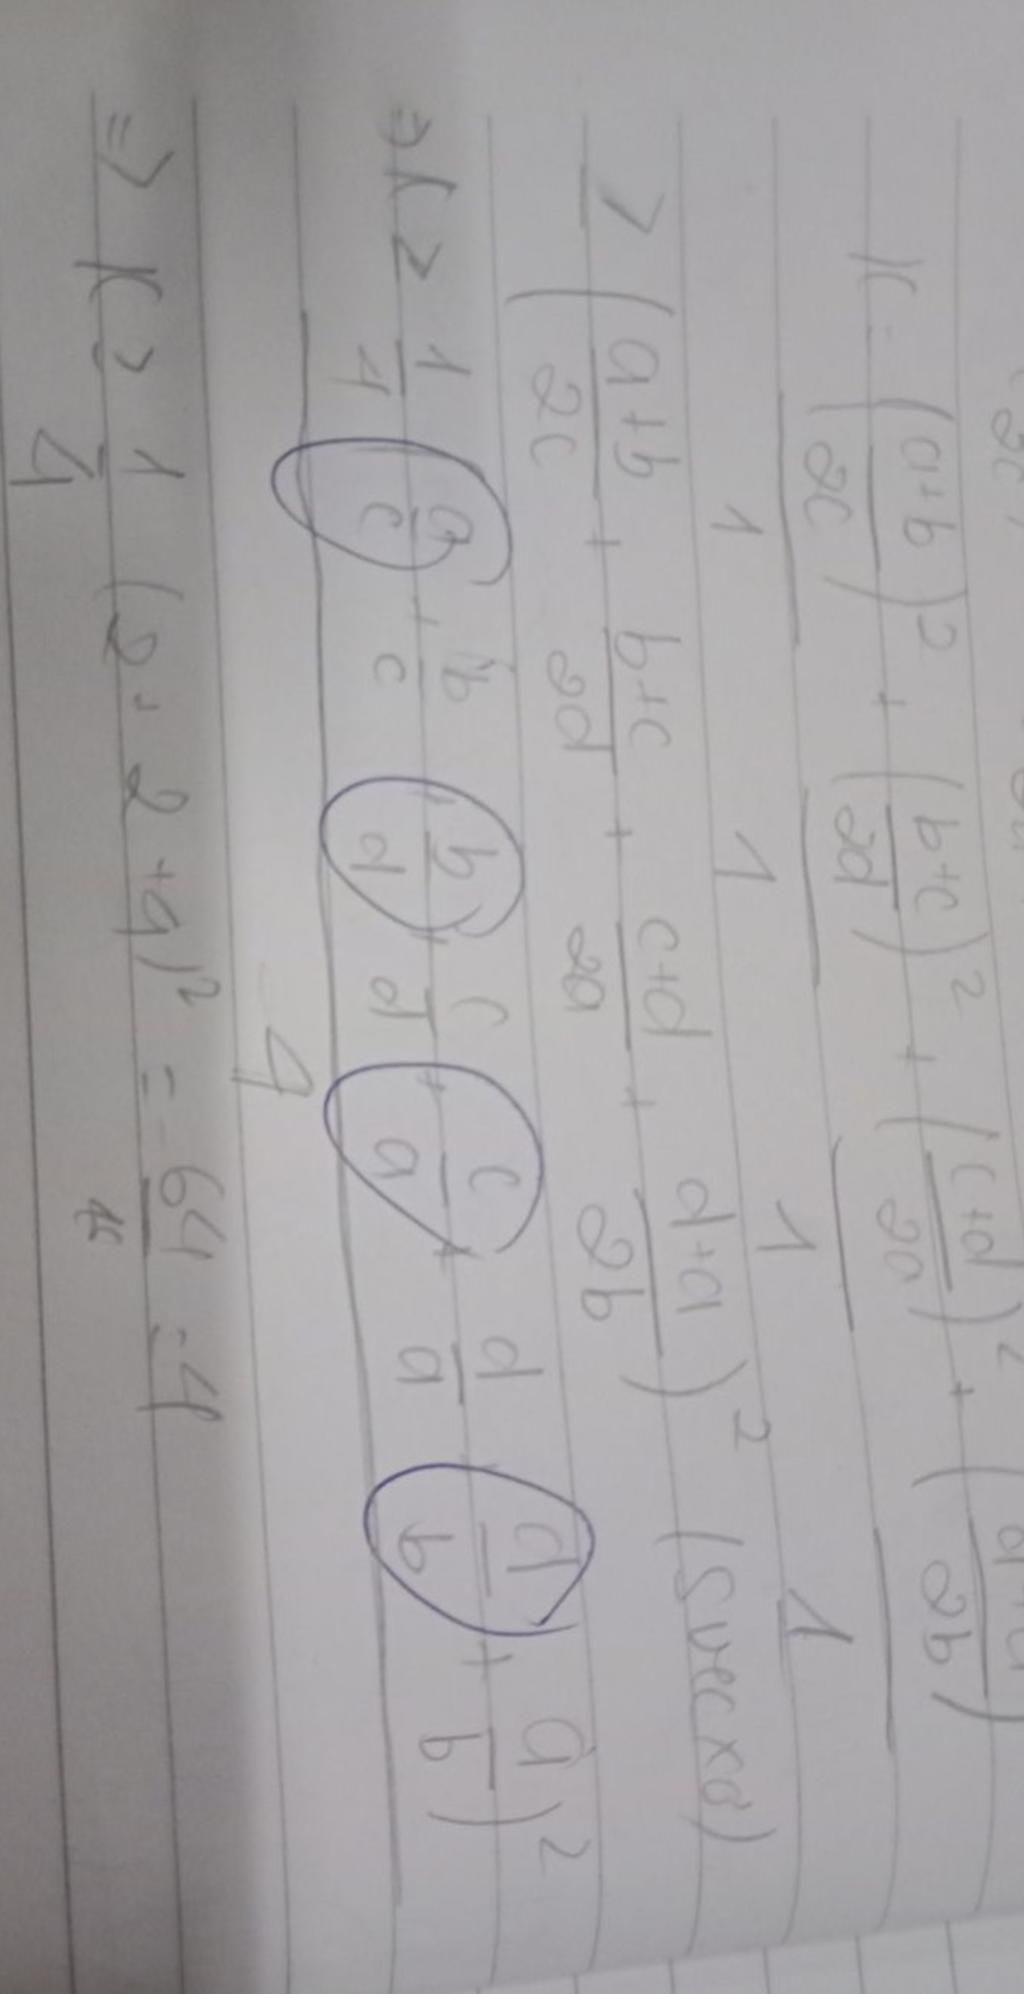 K = ((a+b)/2c)² + ((b+c)/2d)² + ((c+d)/2a)² + ((d+a)/2b)
1 1 1 1
≥ ((a+b)/2c + (b+c)/2d + (c+d)/2a + (d+a)/2b)² (Svecxơ)
4
⇒ K ≥ 1/4 (a/c + b/c + b/d + c/d + c/a + d/a + d/b + a/b)²
4
⇒ K ≥ 1/4 (2 + 2 + 4)² = 64/16 = 4